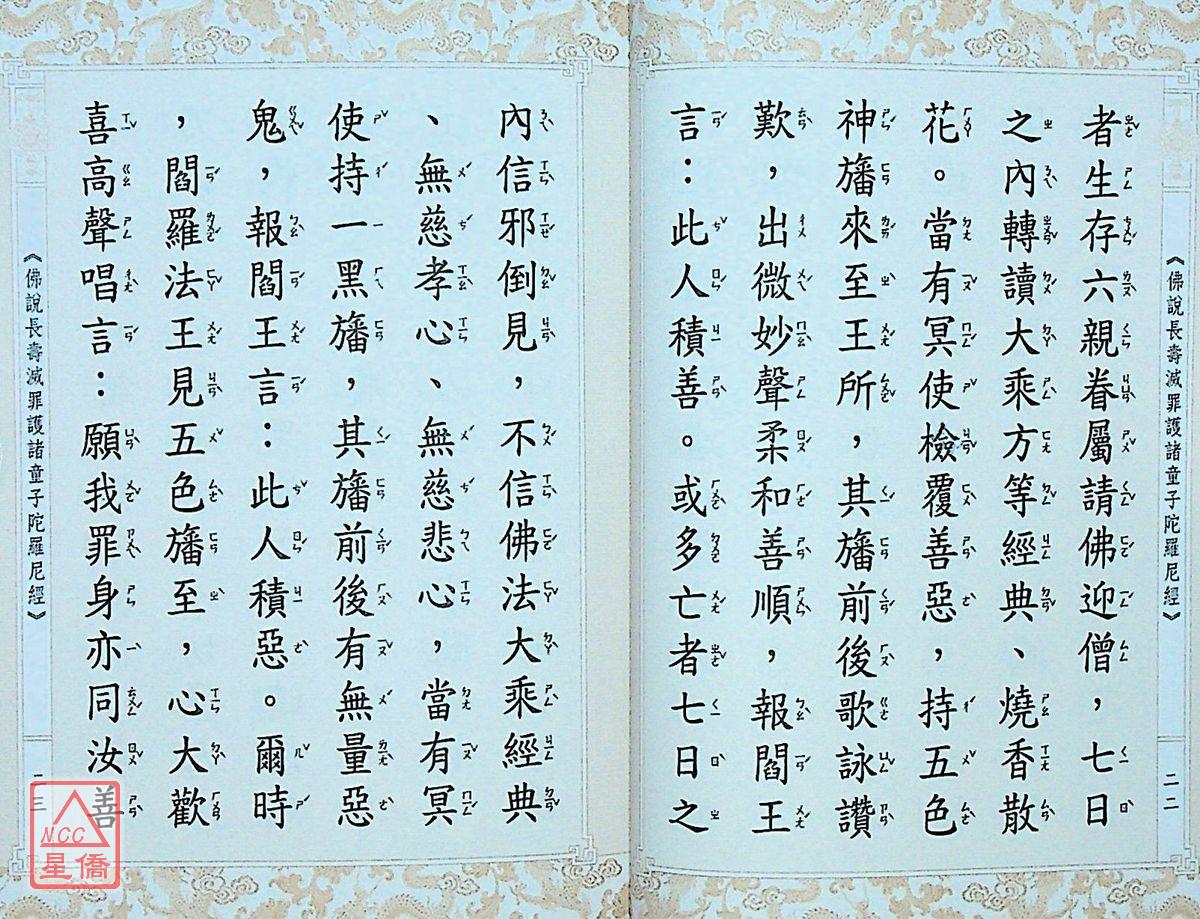 《佛說長壽滅罪護諸童子陀羅尼經》
二二
者生存六親眷屬請佛迎僧，七日
之內轉讀大乘方等經典、燒香散
花。當有冥使檢覆善惡，持五色
神旛來至王所，其旛前後歌詠讚
歎，出微妙聲柔和善順，報閻王
言：此人積善。或多亡者七日之
內信邪倒見，不信佛法大乘經典
、無慈孝心、無慈悲心，當有冥
使持一黑旛，其旛前後有無量惡
鬼，報閻王言：此人積惡。爾時
，閻羅法王見五色旛至，心大歡
喜高聲唱言：願我罪身亦同汝善
《佛說長壽滅罪護諸童子陀羅尼經》
二三
NCC
星僑